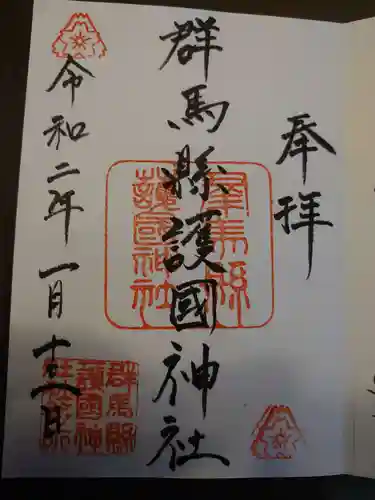 奉拝
群馬縣護國神社
令和二年一月十二日
群馬縣
護國神社
群馬縣
護國神
社務所